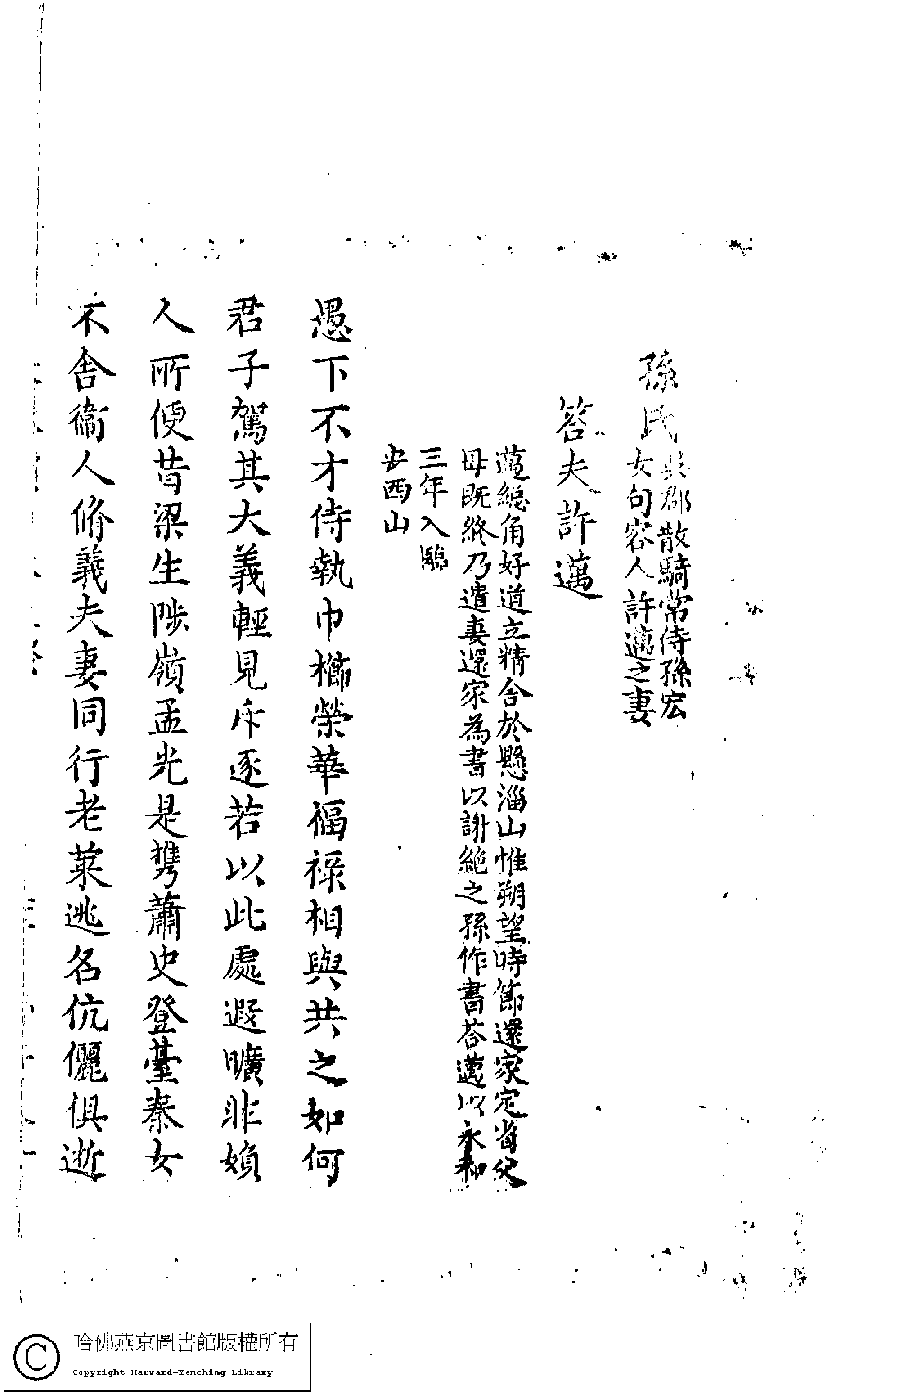 孫氏吳郡散騎常侍孫宏
女句容人許邁之妻
答夫許邁
邁總角好道立精舍於懸溜山惟朔望時節還家定省父
母既終乃遣妻還家為書以謝絕之孫作書荅邁以永和
三年入臨
安西山
愚下不才侍執巾櫛榮華福祿相與共之如何
君子駕其大義輕見斥逐若以此處遐曠非嬪
人所便昔梁生陟嶺孟光是携蕭史登臺秦女
不舍衞人脩義夫妻同行老萊逃名伉儷俱逝
哈佛燕京圖書館版權所有
Copyright Harvard-Yenching Library